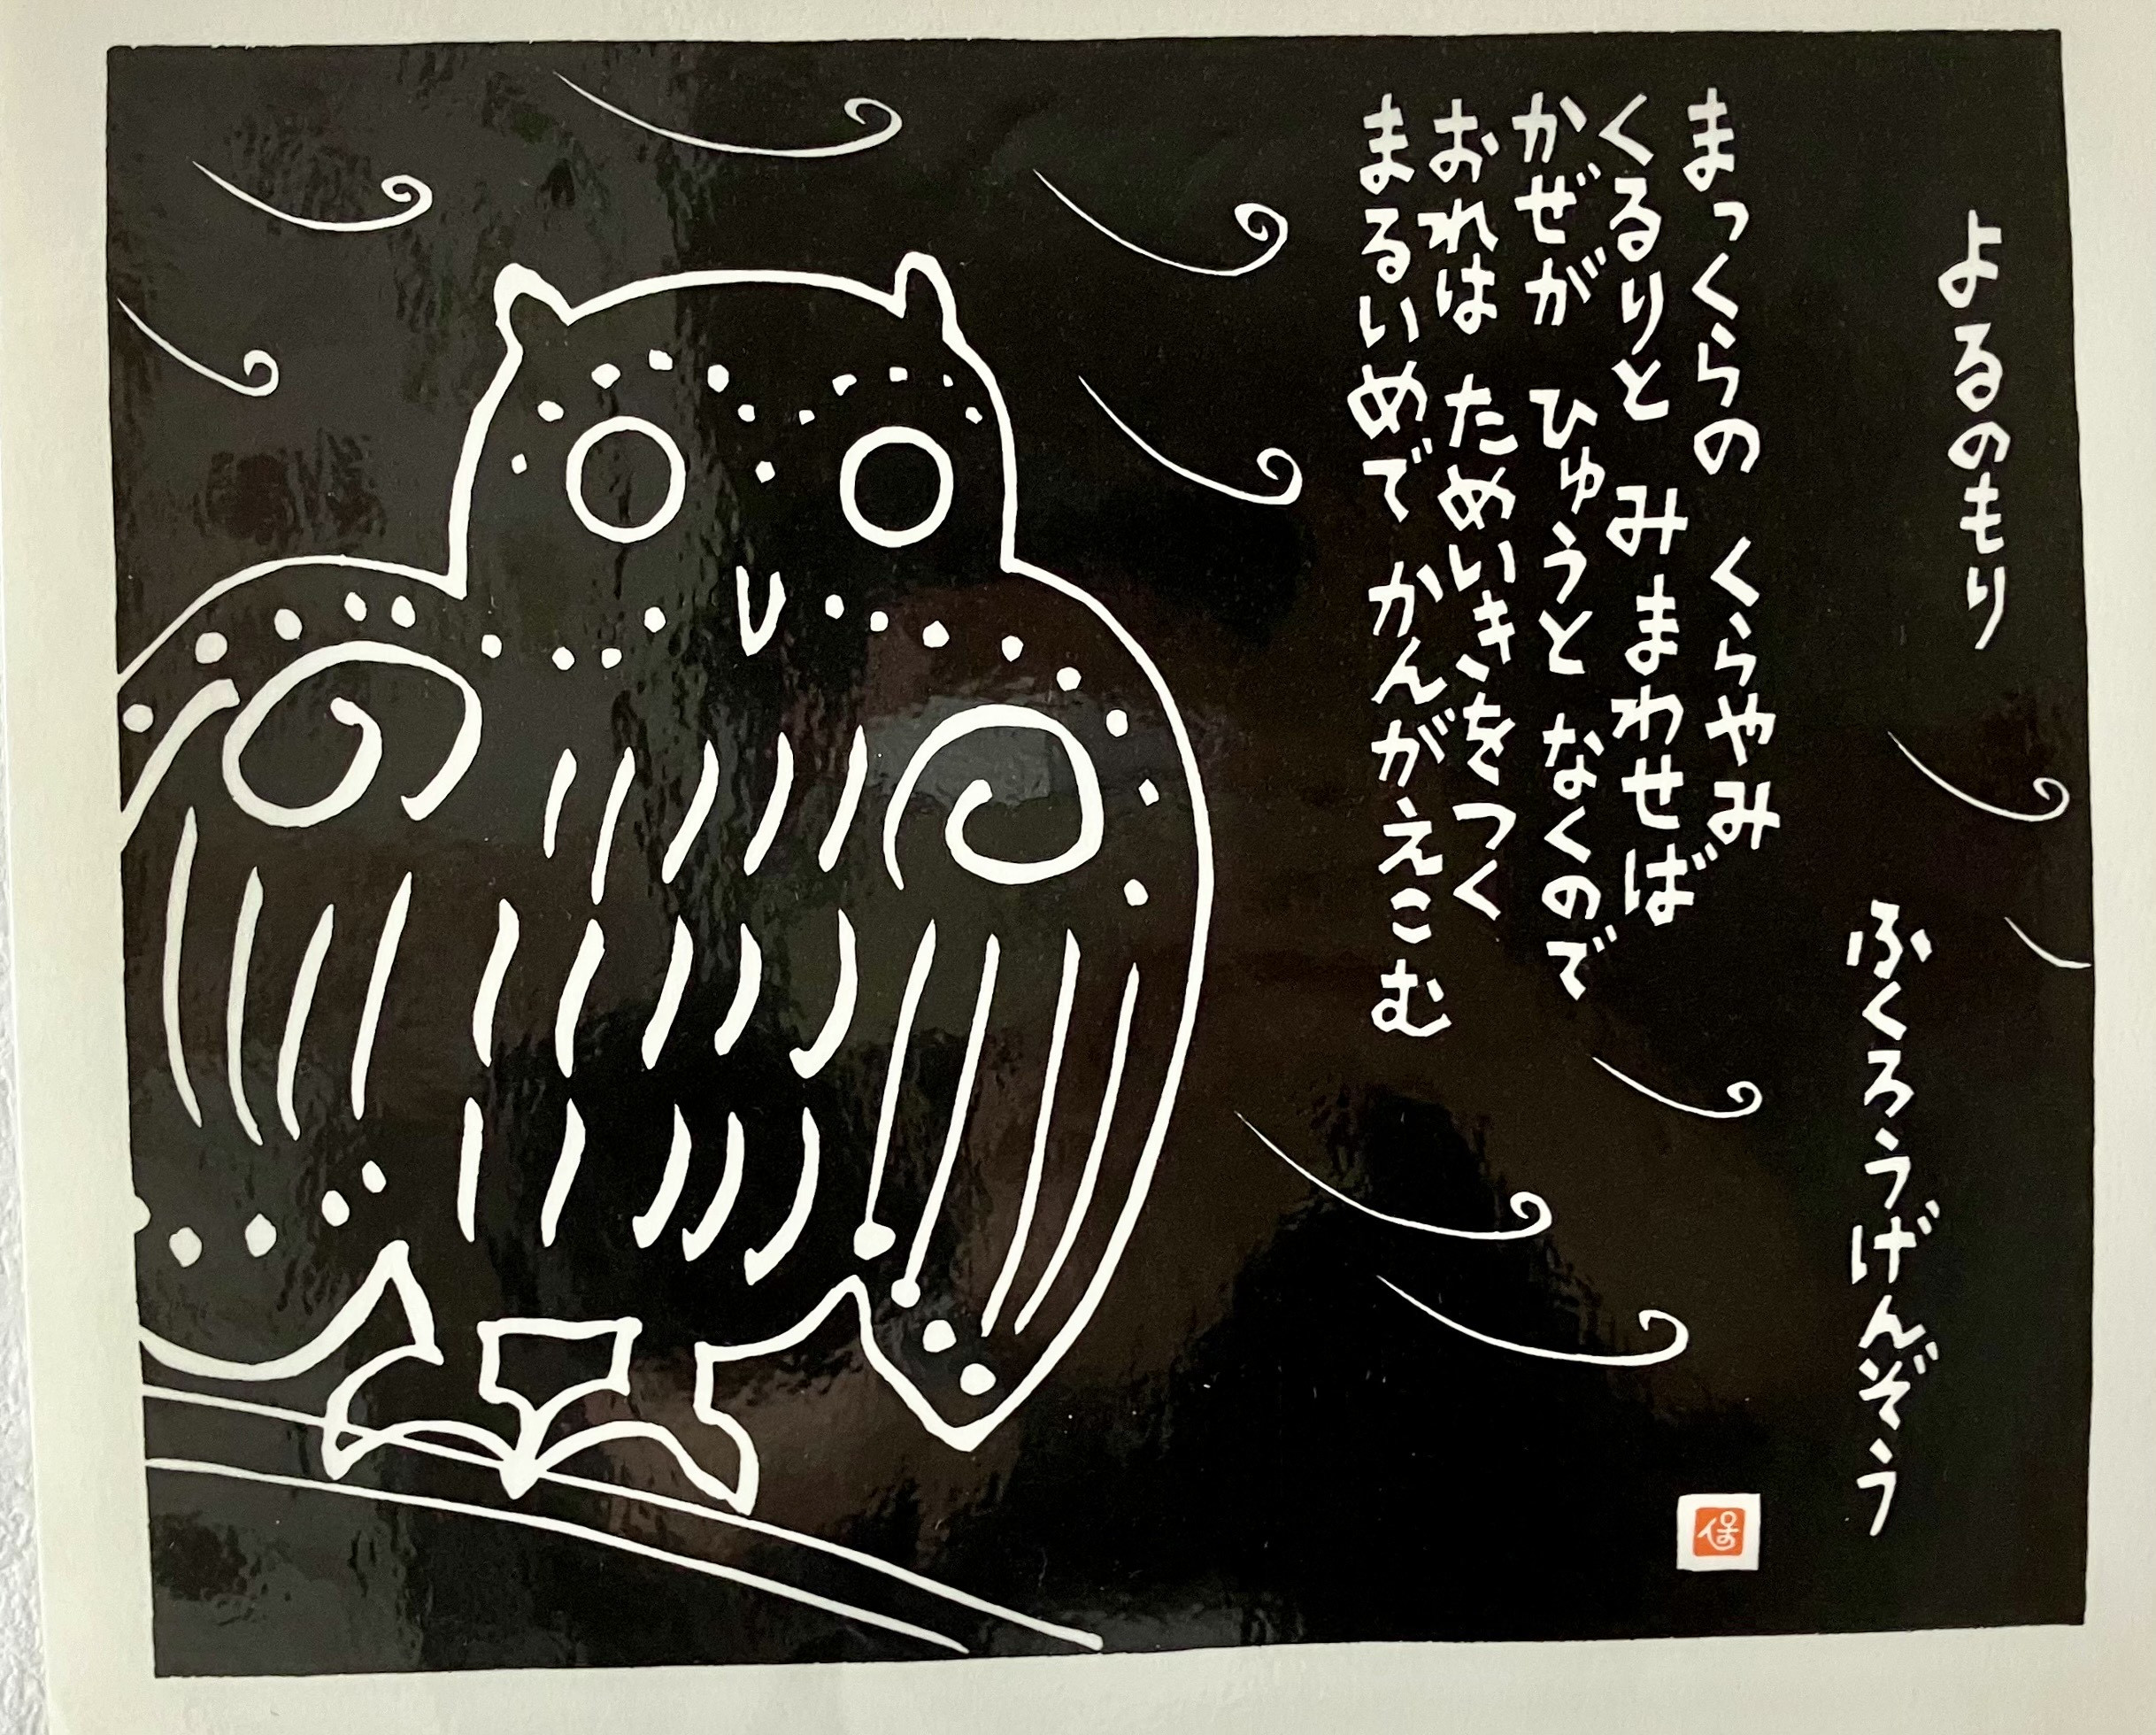 よるのもり
ふくろうげんぞう
まっくらの くらやみ
くるりと みまわせば
かぜが ひゅうと なくので
おれは ためいきをつく
まるいめで かんがえこむ